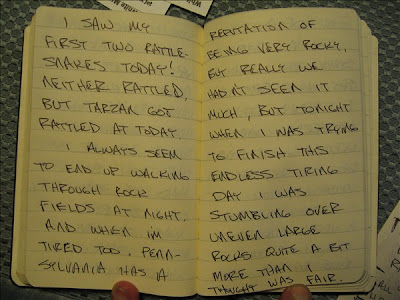 I SAW MY
FIRST TWO RATTLE-
SNAKES TODAY!
NEITHER RATTLED,
BUT TARZAN GOT
RATTLED AT TODAY.
I ALWAYS SEEM
TO END UP WALKING
THROUGH ROCK
FIELDS AT NIGHT.
AND WHEN I'M
TIRED TOO. PENN-
SYLVANIA HAS A
REPUTATION OF
BEING VERY ROCKY,
BUT REALLY WE
HADN'T SEEN IT
MUCH, BUT TONIGHT
WHEN I WAS TRYING
TO FINISH THIS
ENDLESS TIRING
DAY I WAS
STUMBLING OVER
UNEVEN LARGE
ROCKS QUITE A BIT
MORE THAN I
THOUGHT WAS FAIR.